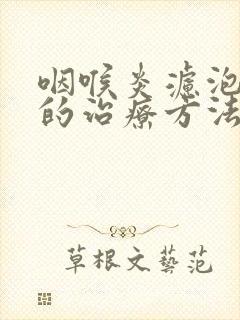 咽喉炎濾泡
的治療方法
草根文藝范